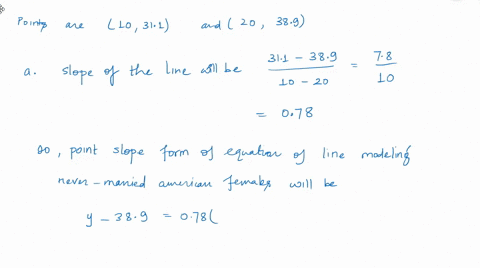 Points are (10, 31.1) and (20, 38.9)
a. slope of the line will be 31.1 - 38.9 / 10 - 20 = 7.8 / 10
= 0.78
So, point slope form of equation of line modeling
never-married american females will be
y - 38.9 = 0.78(